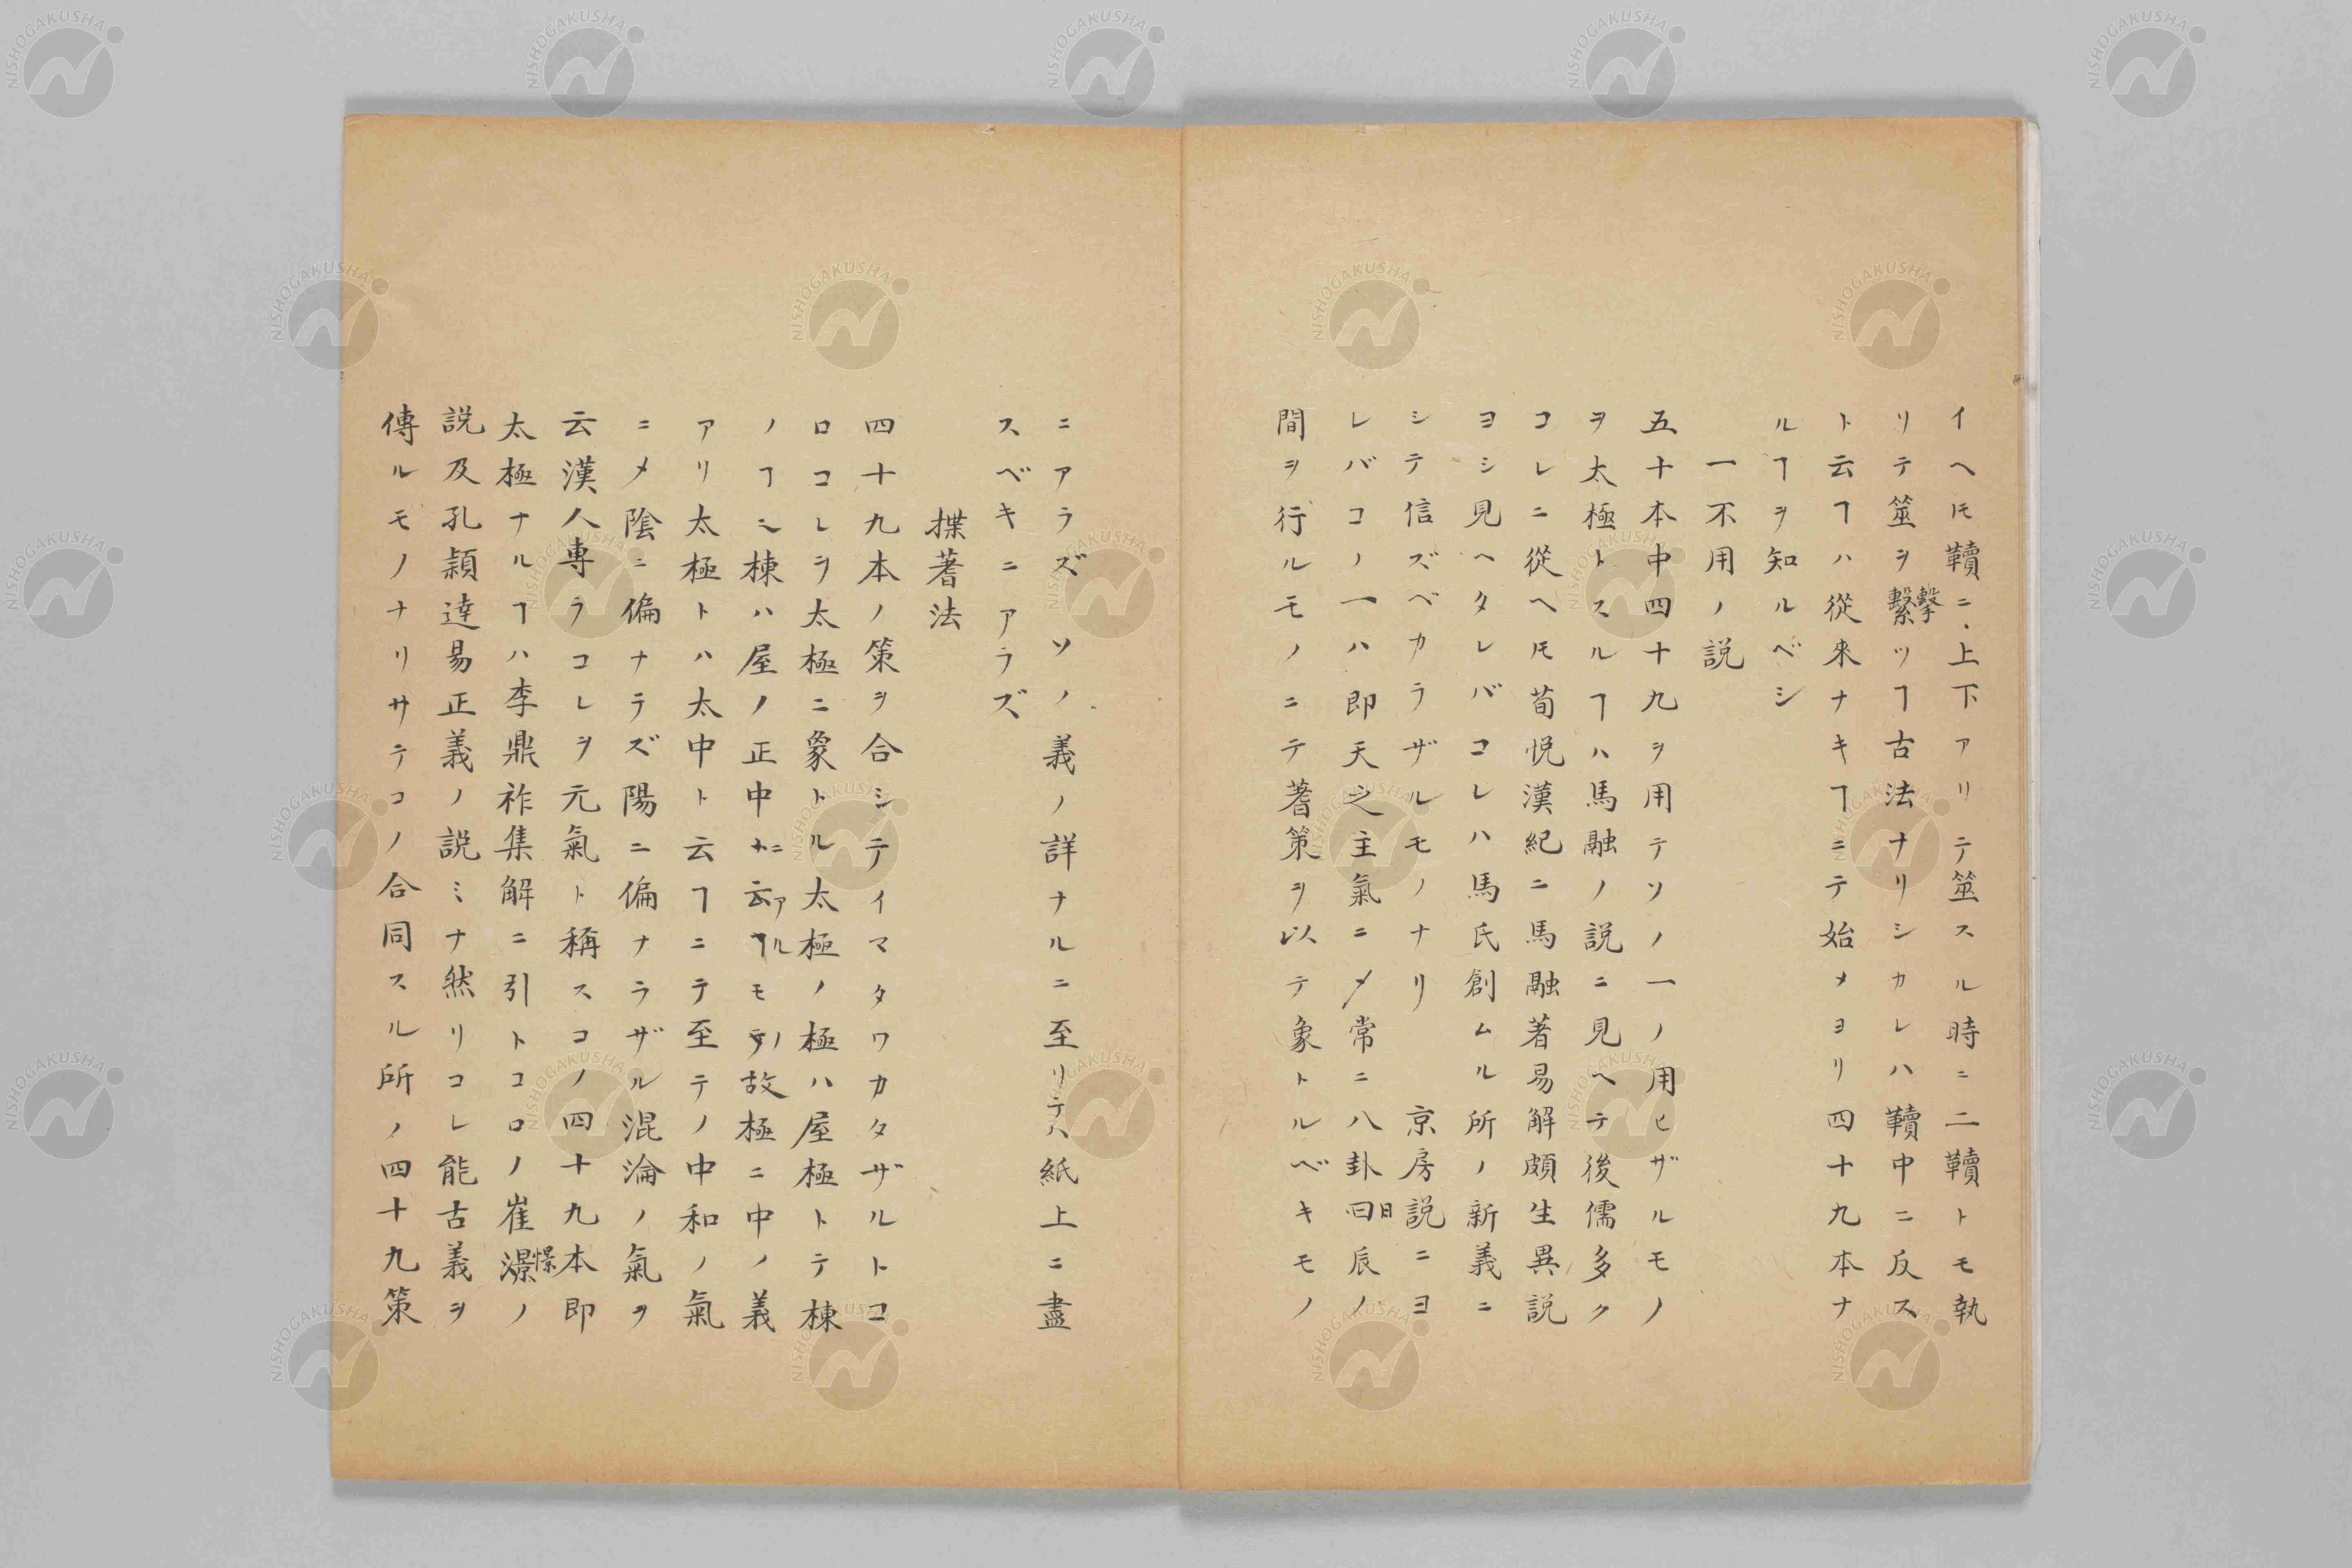 イヘ𪜈韇ニ上下アリテ筮スル時ニ二韇トモ執
リテ筮ヲ繫擊ツヿ古法ナリシカレハ韇中ニ反ス
ト云ヿハ從來ナキヿニテ始メヨリ四十九本ナ
ルヿヲ知ルベシ
一不用ノ説
五十本中四十九ヲ用テソノ一ノ用ヒザルモノ
ヲ太極トスルヿハ馬融ノ説ニ見ヘテ後儒多ク
コレニ從ヘ𪜈荀悦漢紀ニ馬融著易解頗生異説
ヨシ見ヘタレバコレハ馬氏創ムル所ノ新義ニ
シテ信ズベカラザルモノナリ 京房説ニヨ
レバコノ一ハ即天之主氣ニ〆常ニ八卦曰日辰ノ
間ヲ行ルモノニテ蓍策ヲ以テ象トルベキモノ
ニアラズ ソノ義ノ詳ナルニ至リテハ紙上ニ盡
スベキニアラズ
揲蓍法
四十九本ノ策ヲ合シテイマタワカタザルトコ
ロコレヲ太極ニ象トル太極ノ極ハ屋極トテ棟
ノヿ也棟ハ屋ノ正中ニ云ヿアルモノ故極ニ中ノ義
アリ太極トハ太中ト云ヿニテ至テノ中和ノ氣
ニ〆陰ニ偏ナラズ陽ニ偏ナラザル混淪ノ氣ヲ
云漢人専ラコレヲ元氣ト稱スコノ四十九本即
太極ナルヿハ李鼎祚集解ニ引トコロノ崔澋憬ノ
説及孔穎達易正義ノ説ミナ然リコレ能古義ヲ
傳ルモノナリサテコノ合同スル所ノ四十九策
NISHOGAKUSHA